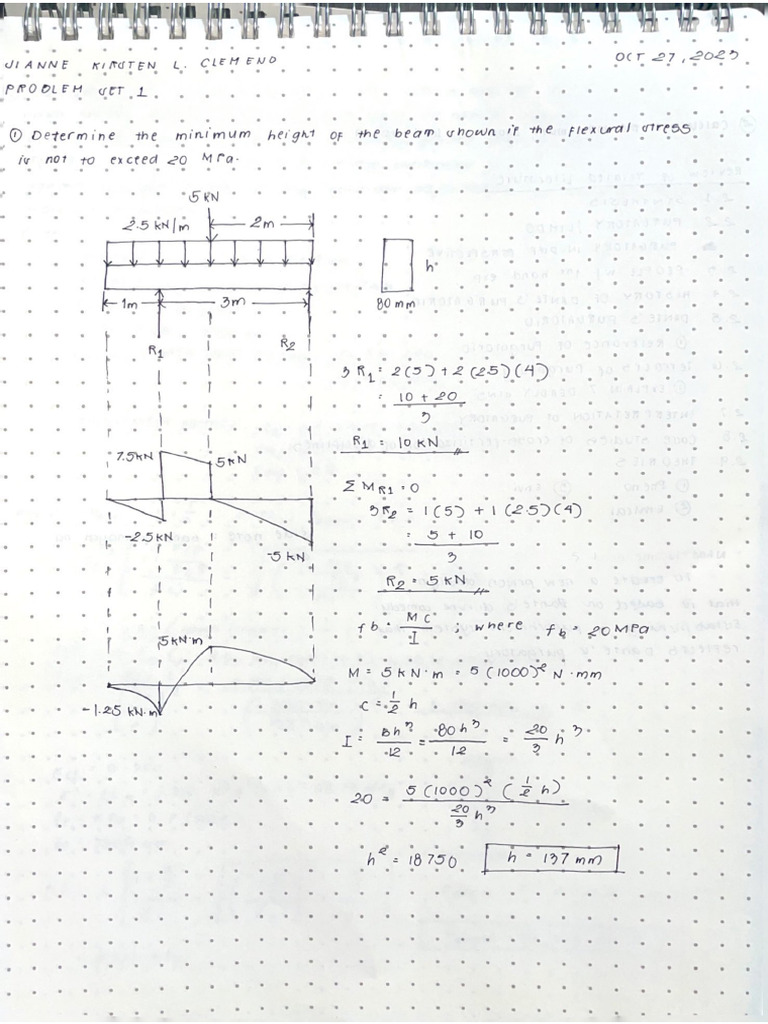 JIANNE KIRSTEN L. CLEMENO
OCT 27, 2023
PROBLEM SET 1
① Determine the minimum height of the beam shown if the flexural stress
is not to exceed 20 MPa.
5 KN
2.5 kN/m
2m
h
1m
3m
80 mm
R1
R2
3 R1 = 2(5) + 2(2.5)(4)
= 10 + 20
3
R1 = 10 KN
7.5kN
5KN
-2.5KN
-5 KN
Σ MR1 = 0
3R2 = 1(5) + 1(2.5)(4)
= 5 + 10
3
R2 = 5 KN
fb = MC/I ; where fb = 20 MPa
5KN·m
-1.25 KN·m
M = 5 KN·m = 5(1000)² N·mm
C = 1/2 h
I = Bh³/12 = 80h³/12 = 20/3 h³
20 = 5(1000)² (1/2 h)
20/3 h³
h² = 18750
h = 137 mm